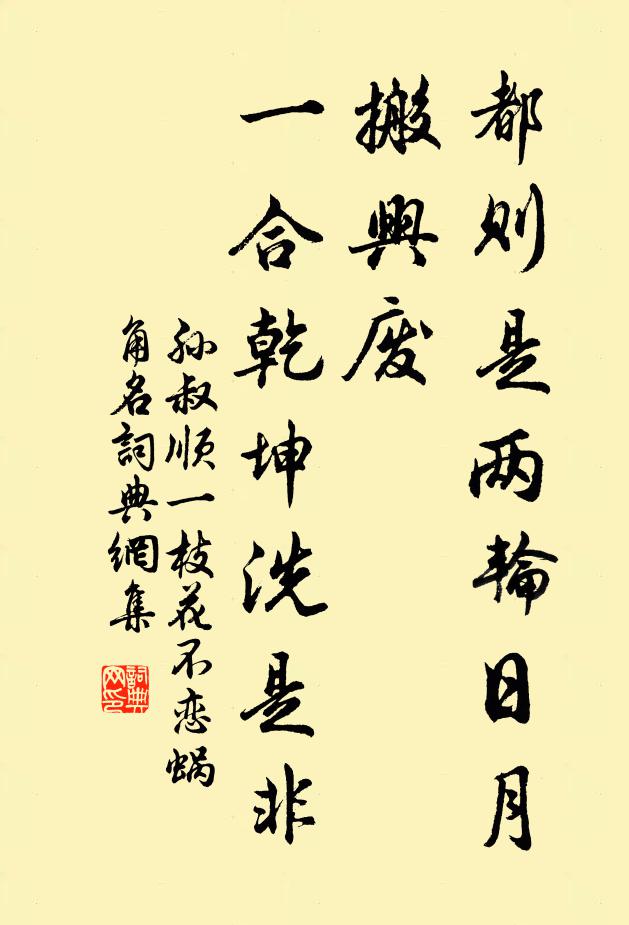 都则是两輪日月
搬興废
一合乾坤洗是非
孙叔顺一枝花不恋蜗
角名詞典網集
詞典
网印